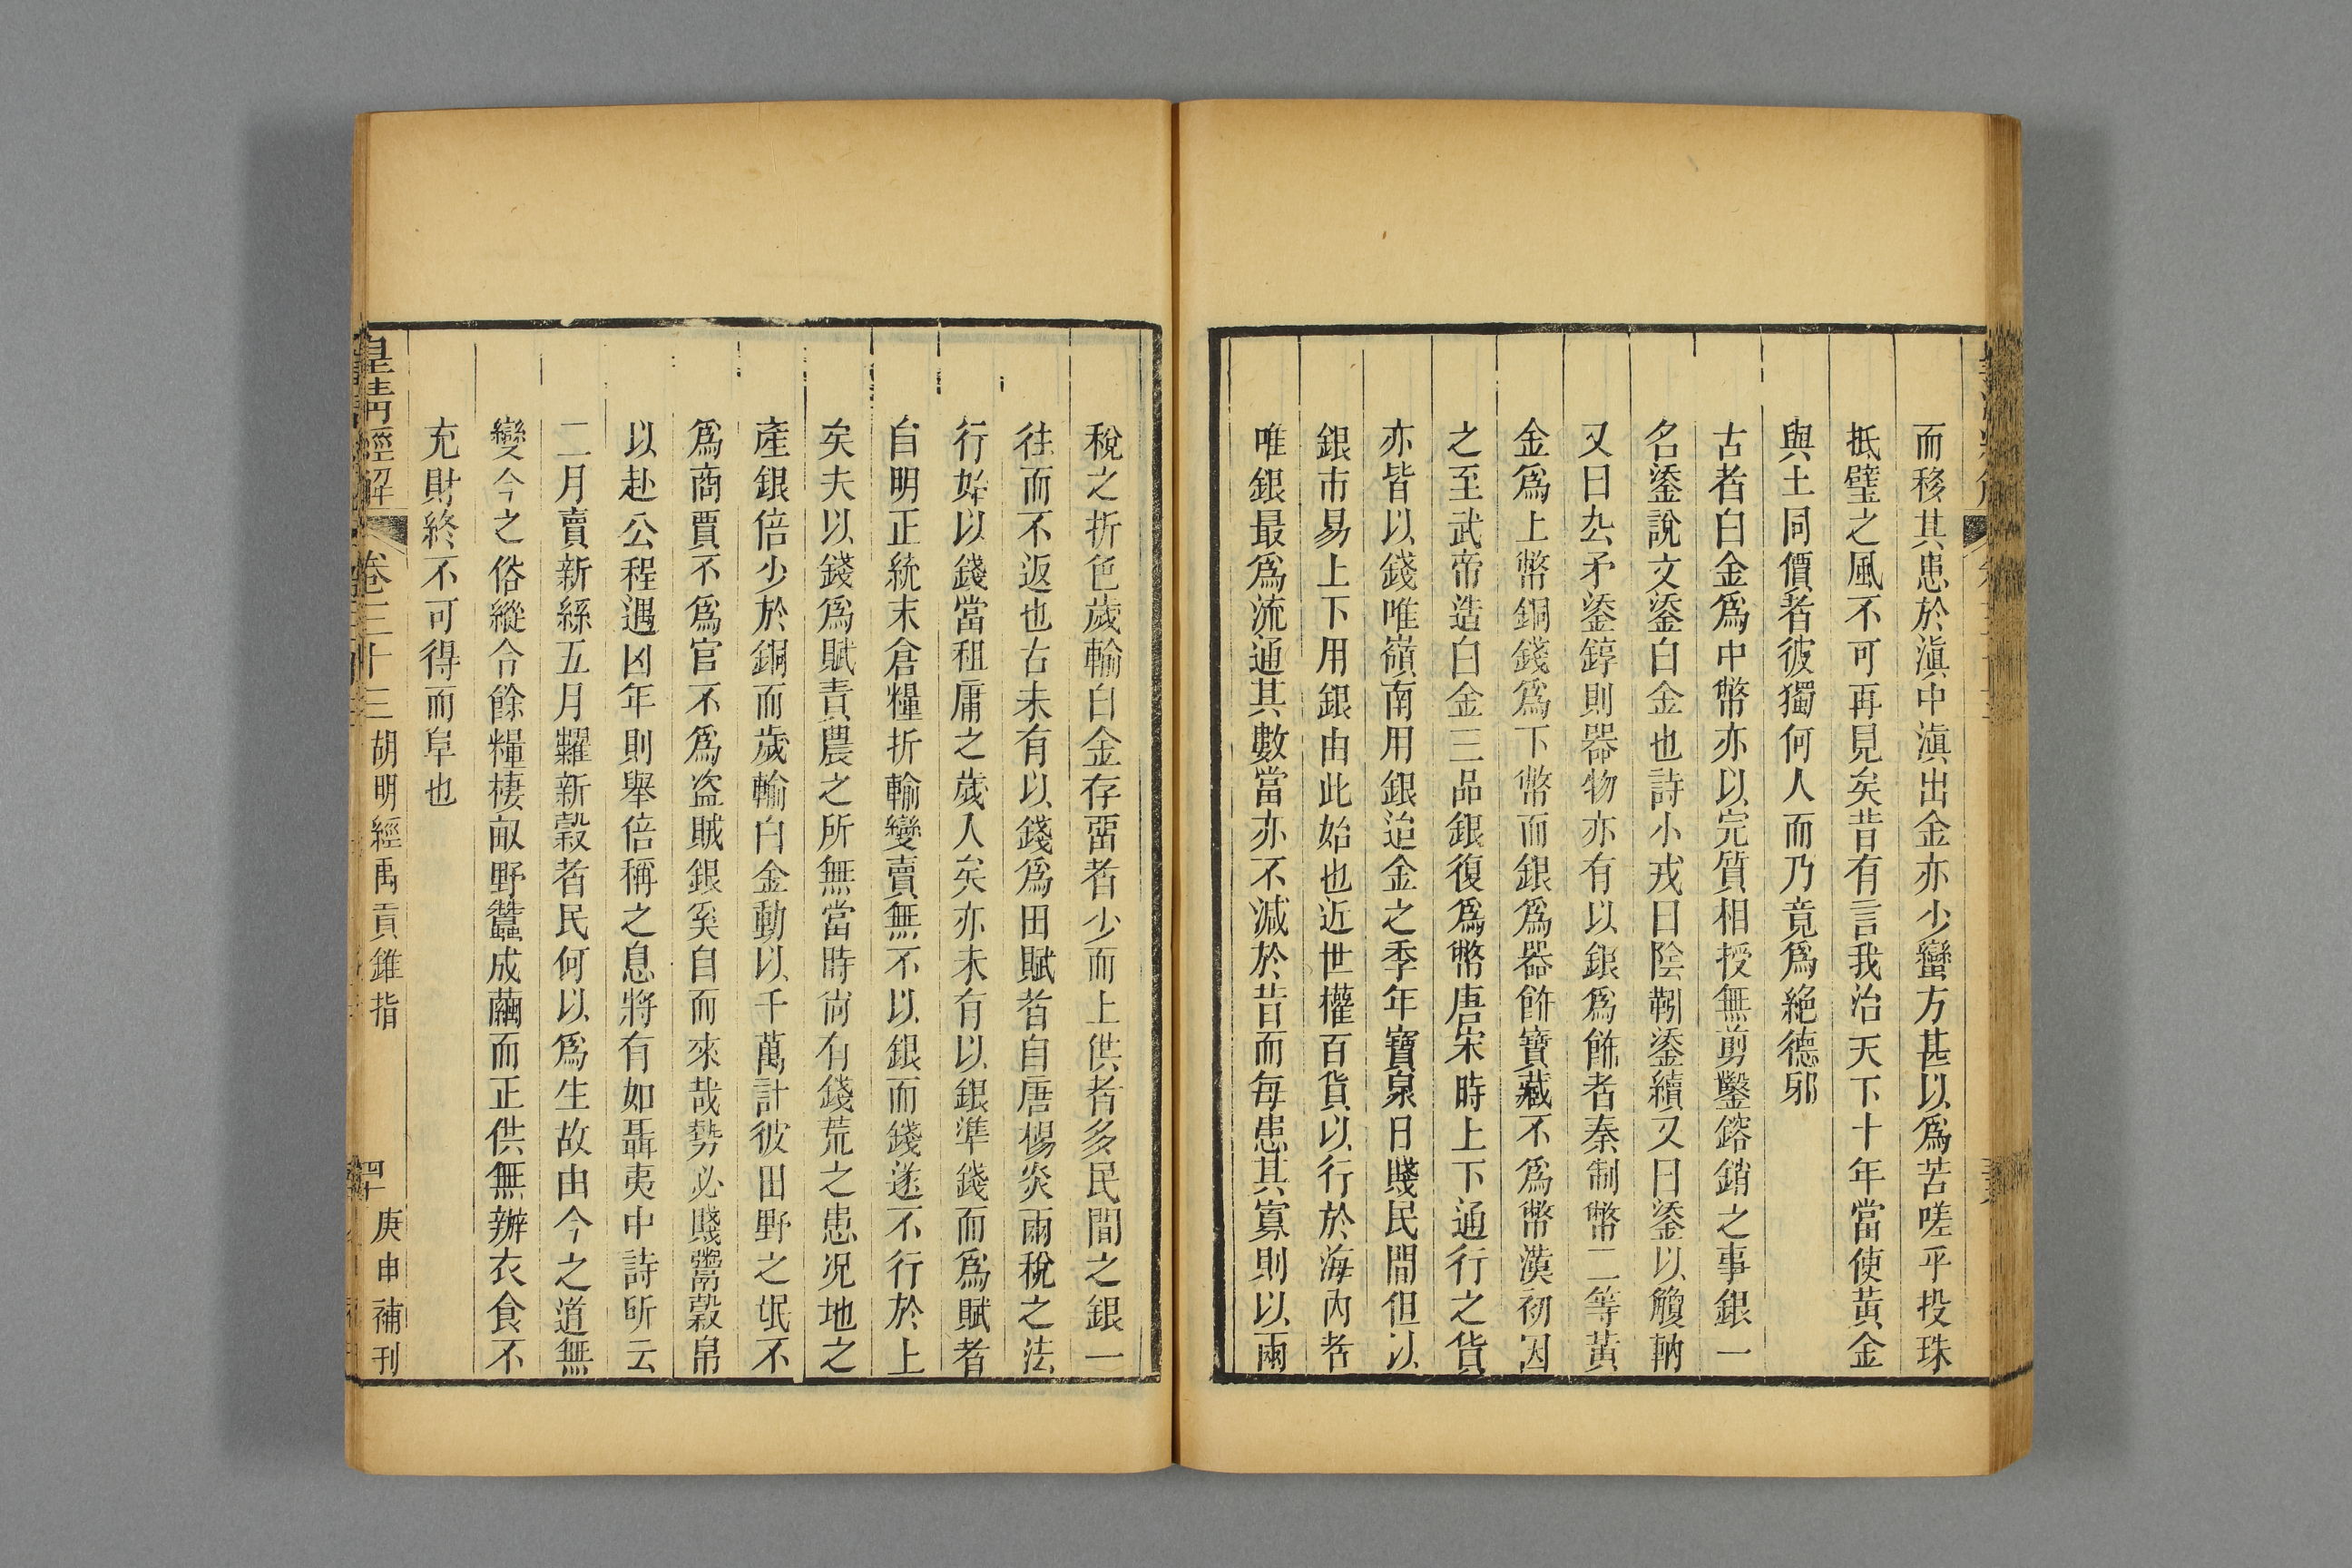 而移其患於滇中滇出金亦少蠻方甚以爲苦嗟乎投珠
抵璧之風不可再見矣昔有言我治天下十年當使黃金
與土同價者彼獨何人而乃竟爲絶德邪
古者白金爲中幣亦以完質相授無剪鑿鎔銷之事銀一
名鋈說文鋈白金也詩小戎曰陰靷鋈續又曰鋈以觼軜
又曰厹矛鋈錞則器物亦有以銀爲餙者秦制幣二等黃
金爲上幣銅錢爲下幣而銀爲器餙寶藏不爲幣漢初因
之至武帝造白金三品銀復爲幣唐宋時上下通行之貨
亦皆以錢唯嶺南用銀迨金之季年寶泉日賤民間但以
銀市易上下用銀由此始也近世權百貨以行於海內者
唯銀最爲流通其數當亦不減於昔而每患其寡則以兩
稅之折色歲輸白金存畱者少而上供者多民間之銀一
往而不返也古未有以錢爲田賦者自唐楊炎兩稅之法
行始以錢當租庸之歲人矣亦未有以銀準錢而爲賦者
自明正統末倉糧折輸變賣無不以銀而錢遂不行於上
矣夫以錢爲賦責農之所無當時尙有錢荒之患況地之
產銀倍少於銅而歲輸白金動以千萬計彼田野之氓不
爲商賈不爲官不爲盗賊銀奚自而來哉勢必賤鬻穀帛
以赴公程遇凶年則舉倍稱之息將有如聶夷中詩所云
二月賣新絲五月糶新穀者民何以爲生故由今之道無
變今之俗縱令餘糧棲畝野蠶成繭而正供無辦衣食不
充財終不可得而阜也
皇淸經解 卷三十三 胡明經禹貢錐指 四十 庚申補刊